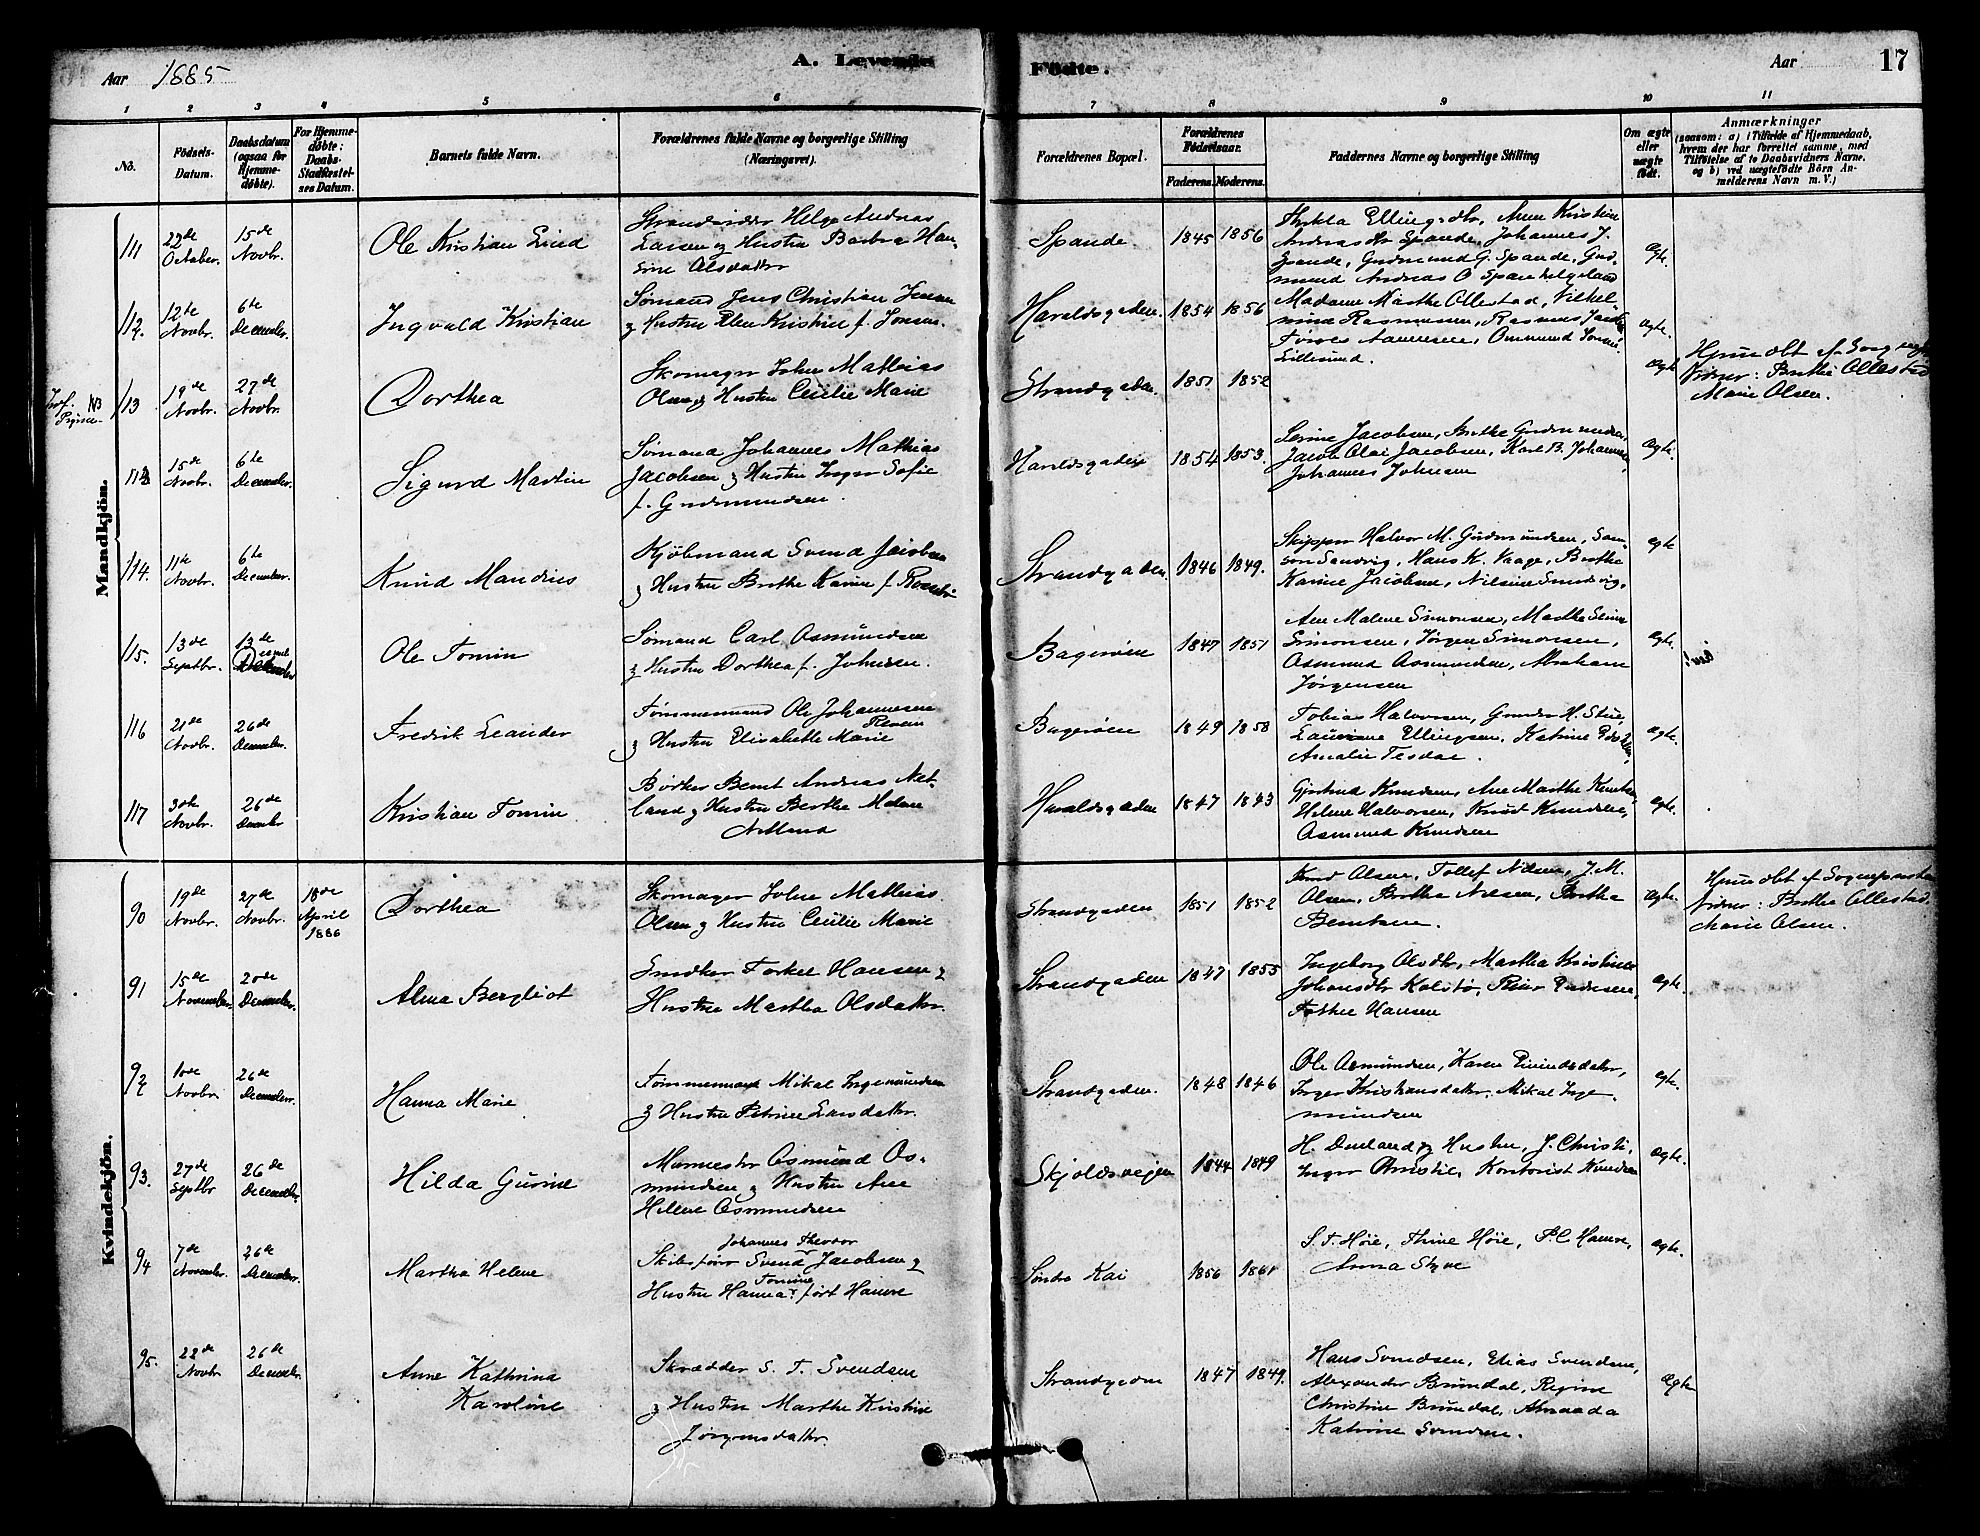 Aar 1885
A. Levende
Födte.
Aar
17
1 2 3 4 5 6 7 8 9 10 11
No.
Födsels-
Datum.
Daabsdatum
(ogsaa for
Hjemme-
døbte).
For Hjemme-
døbte:
Daabs-
Stadfæstel-
ses Datum.
Barnets fulde Navn.
Forældrenes fulde Navne og borgerlige Stilling
(Næringsvei).
Forældrenes Bopæl.
Forældrenes
Födselsaar.
Faderens. Moderens.
Faddernes Navne og borgerlige Stilling
Om ægte
eller
uægte
født.
Anmærkninger
(saasom: a) i Tilfælde af Hjemmedaab,
hvem der har forrettet samme, med
Tilføielse af to Daabsvidners Navne,
og b) ved uægtefødte Börn An-
melderens Navn m. V.)
Mandkjön.
111 22de October. 15de Novbr.
Ole Kristian Lind
Helge Andreas
Larsen og Hustru Barbra Han-
sine Olsdatter
Spande
1845 1856
Thekla Ellingsdtr, Anne Kristine
Andreasdtr Spande, Johannes J.
Spande, Gudmund G. Spande, Gud-
mund Andreas O Spande
Ægte.
112. 12te Novbr. 6te December.
Ingvald Kristian
Sømand Jens Christian Jensen
og Hustru Elen Kristine f. Jonsen.
Haraldsgaden.
1854 1856
Madame Marthe Ollestad, Vilhel-
mine Rasmussen, Rasmus
Ægte.
113 19de Novbr. 27de Novbr.
Dorthea
Skomager John Mathias
Olsen og Hustru Cecilie Marie
Strandgaden.
1851 1852
Ægte
Hjemdøbt af
Vidner: Berthe Ollestad
Marie Olsen.
113 15de Novbr. 6te December.
Sigurd Martin
Sømand Johannes Mathias
Jacobsen og Hustru Inger Sofie
f. Gudmundsen.
Haraldsgaden
1854 1853.
Serine Jacobsen, Berthe Gudmundsen,
Jacob Olai Jacobsen, Karl B. Johannesen,
Johannes Johnsen
Ægte.
114. 11te Novbr. 6te December.
Knud Mandius
Kjøbmand Svend Jacobsen
og Hustru Berthe Karine f.
Strandgaden.
1846 1849.
Skipper Halvor M. Gudmundsen, Sam-
son Sandvig, Hans K. Vaage, Berthe
Karine Jacobsen, Nilsine Sandvig.
Ægte
115. 13de Septbr. 13de December
Ole Tomin
Sømand Carl Osmundsen
og Hustru Dorthea f. Johnsen.
Bagerøen
1847 1851
Ane Malene Simonsen, Marthe Seine
Simonsen, Jørgen Simonsen,
Osmund Osmundsen, Abraham
Jørgensen
Ægte.
116 21de Novbr. 26de December.
Fredrik Leander
Tømmermand Ole Johannesen
og Hustru Elisabeth Marie
Bagerøen
1849 1858
Tobias Halvorsen, Gunder H. Stue,
Laurine Ellingsen, Katrine
Amalie Tesdal.
Ægte.
117 3die Novbr. 26de December
Kristian Tomin.
Bødker Bernt Andreas Net-
land og Hustru Berthe Malene
Netland
Haraldsgaden
1847 1843
Gjertrud Knudsen, Ane Marthe Knudsen,
Helene Halvorsen, Knud Knudsen,
Osmund Knudsen
Ægte.
Kvindekjön.
90 19de Novbr. 27de Novbr. 18de April 1886
Dorthea
Skomager John Mathias
Olsen og Hustru Cecilie Marie
Strandgaden
1851 1852
Knud Olsen, Tollef Nilsen, J. M.
Olsen, Berthe Nilsen, Berthe
Berntsen.
Ægte.
Hjemdøbt af Sognepresten
Vidner: Berthe Ollestad.
Marie Olsen.
91 15de November. 20de December.
Alma Bergliot
Snedker Torkel Hansen og
Hustru Martha Olsdatter.
Strandgaden
1847 1855
Ingeborg Olsdtr, Martha Kristine
Johansdtr Kolstø, Peder Pedersen,
Hansen
Ægte.
92 10de Novbr. 26de December.
Hanna Marie
Tømmermand Mikal Ingemundsen
og Hustru Petrine Larsdatter.
Strandgaden.
1848 1846
Ole Osmundsen, Karen Eivindsdatter,
Inger Kristiansdatter, Mikal Inge-
mundsen
Ægte.
93. 27de Septbr 26de December.
Hilda Gurine
Murmester Osmund Os-
mundsen og Hustru Ane
Helene Osmundsen
Skjoldsvejen
1844 1849
H. Dueland og Hustru, J. Christi,
Inger Christie, Kontorist Knudsen
Ægte.
94 7de November. 26de December.
Martha Helene
Johannes Theodor
Skibsfører Svend Jacobsen og
Tomine
Hustru Hanna født Hauvre
Søndre Kai
1856 1861
S. T. Høie, Thine Høie, P. C Hauvre,
Anna Styve
Ægte.
95. 22de Novbr 26de December
Anne Kathrina
Karoline
Skrædder S. T. Svendsen
og Hustru Marthe Kristine
Jørgensdatter.
Strandgaden
1847 1849.
Hans Svendsen, Elias Svendsen,
Alexander Brundal, Regine
Christine Brundal, Amanda
Katrine Svendsen.
Ægte